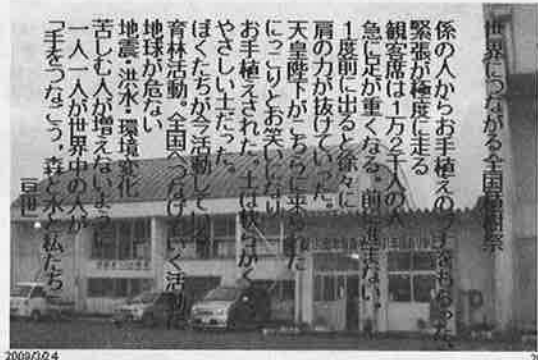 世界につながる全国植樹祭
係の人からお手植えの
緊張が極度に走る
観客席は1万2千人の人
急に足が重くなる。前に進まない。
1度前に出ると徐々に
肩の力が抜けていった。
天皇陛下がこちらに来られた
にっこりとお笑いになり
お手植えされた。土は軟らかく
やさしい土だった。
ぼくたちが今活動している
育林活動。全国へつなげていく活動に
地球が危ない
地震・洪水・環境変化
苦しむ人が増えないように
一人一人が世界中の人が
「手をつなごう。森と水と私たち」
2009/3/24